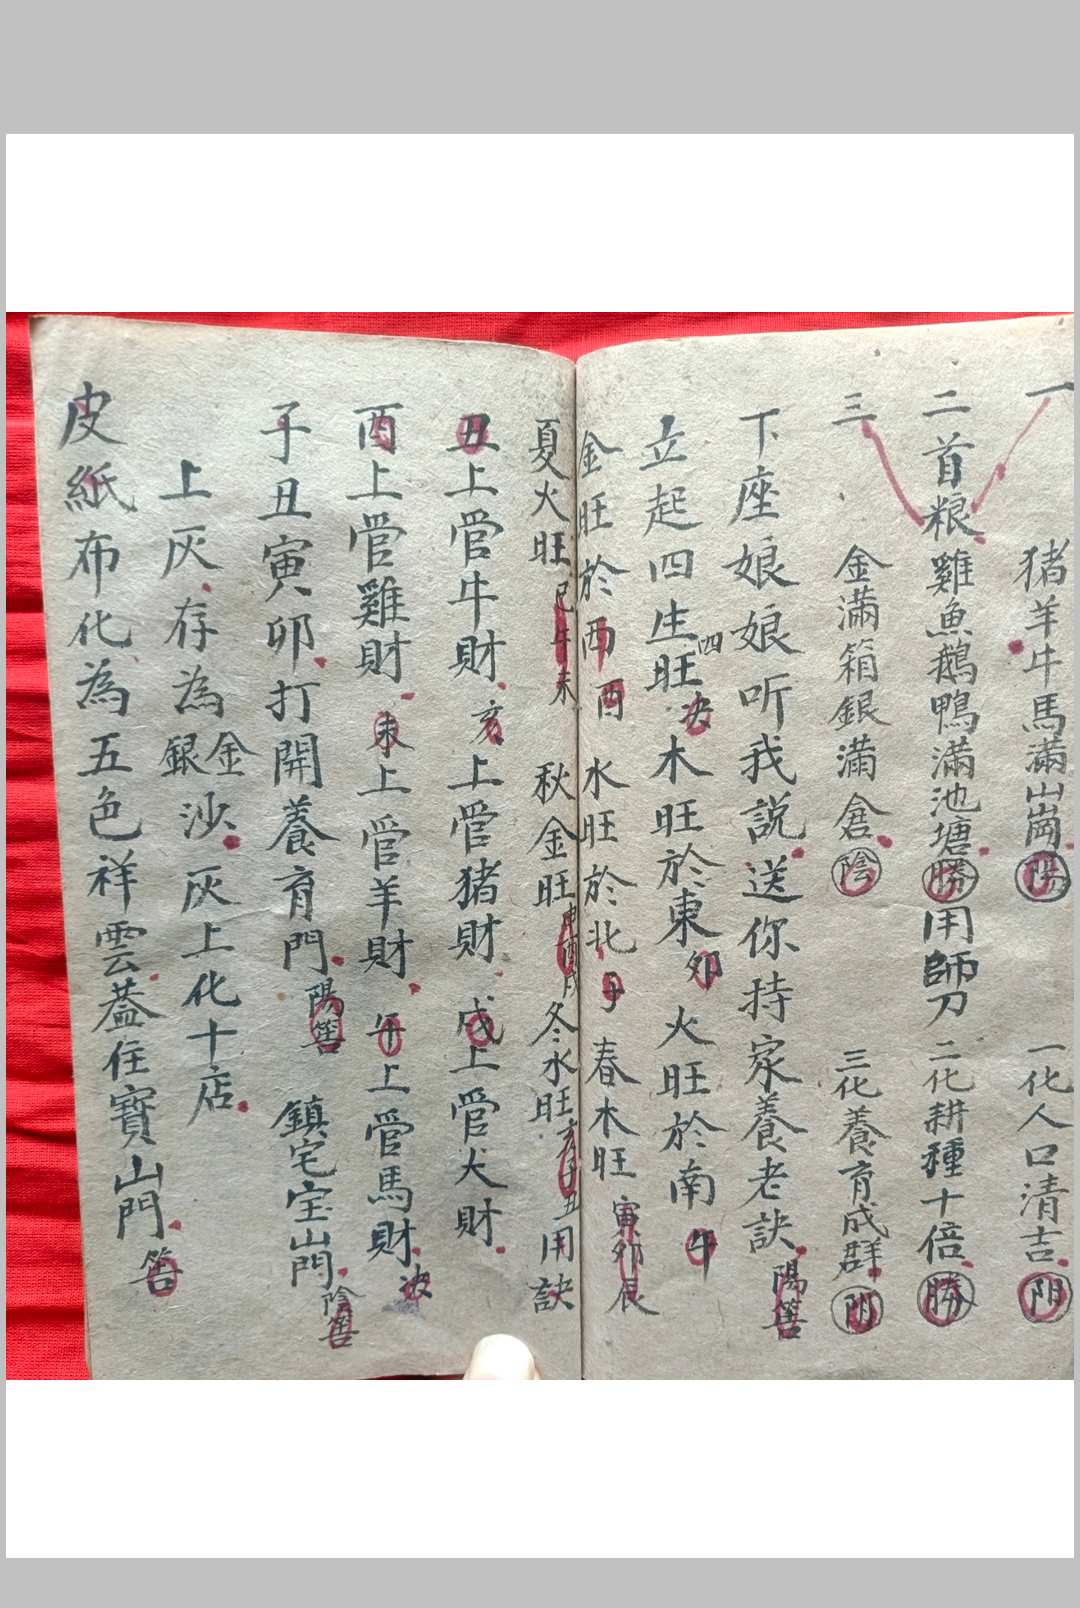 一 猪羊牛馬滿山崗陽 一化人口清吉阴
二首粮雞魚鵝鴨滿池塘勝用師刀 二化耕種十倍勝
三 金滿箱銀滿倉陰 三化養育成群阴
下座娘娘听我説送你持家養老訣陽筶
立起四生旺四决木旺於東卯 火旺於南午
金旺於西酉 水旺於北子 春木旺寅卯辰
夏火旺巳午未 秋金旺申酉戌冬水旺亥子丑用訣
丑上管牛財亥上管猪財戌上管犬財
酉上管雞財未上管羊財午上管馬財决
子丑寅卯打開養育門陽筶 鎮宅宝山門陰筶
上灰存為金銀沙灰上化十店
皮紙布化為五色祥雲蓋住寶山門筶